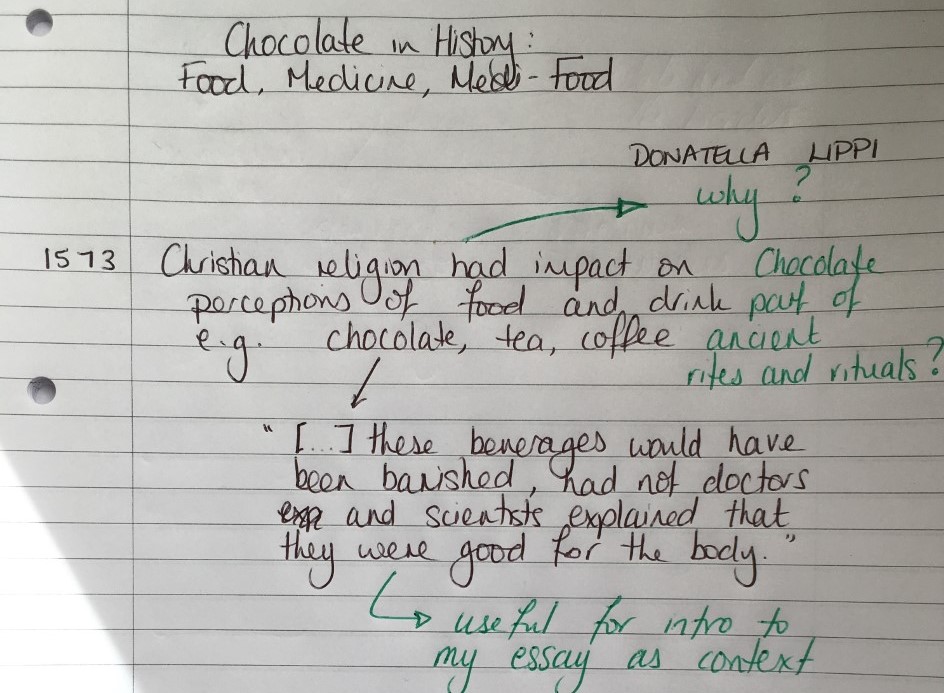 Chocolate in History:
Food, Medicine, Medi-Food
DONATELLA LIPPI
why?
1573 Christian religion had impact on Chocolate
perceptions of food and drink part of
e.g. chocolate, tea, coffee ancient
rites and rituals?
"[...] these beverages would have
been banished, had not doctors
and scientists explained that
they were good for the body."
useful for intro to
my essay as context